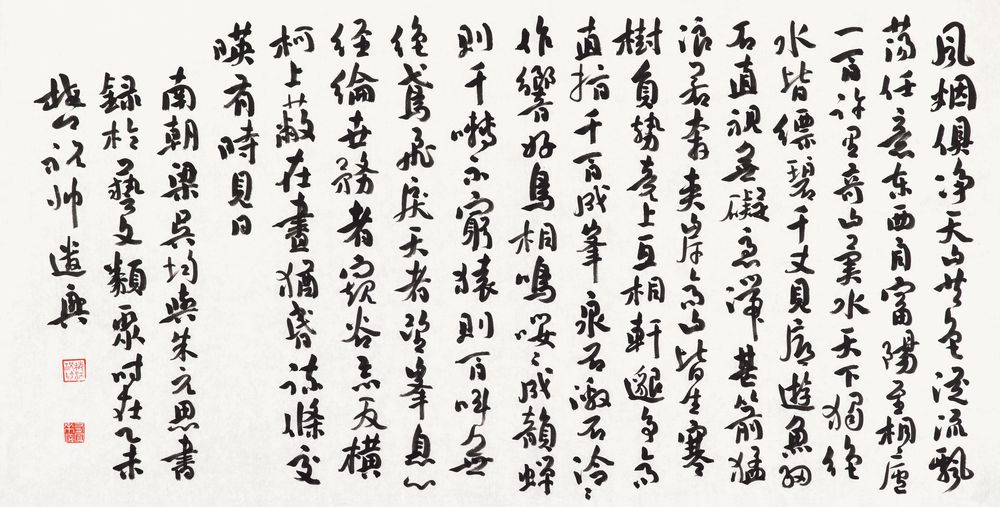 風烟俱净天山共色從流飄
蕩任意东西自富陽至桐廬
一百許里奇山異水天下獨绝
水皆缥碧千丈見底遊魚細
石直視無礙急湍甚箭猛
浪若奔夹岸高山皆生寒
樹負勢竞上互相軒邈争高
直指千百成峯泉石激石泠〻
作響好鳥相鳴嘤〻成韻蟬
則千囀不窮猿則百叫無
绝鸢飛戾天者望峯息心
经綸世務者窺谷忘反横
柯上蔽在晝猶昏疏條交
暎有時見日
南朝梁吳均與朱元思書
録於藝文類聚時在乙未
越人祝帅遣興